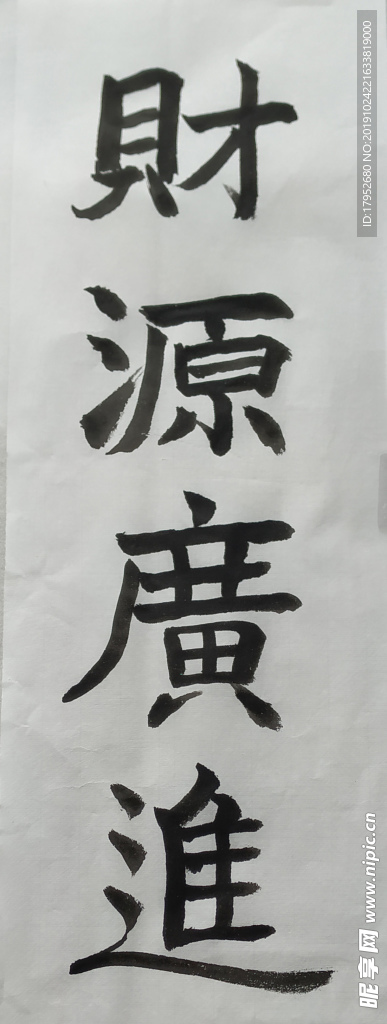 財源廣進
ID:17952680 NO:20191024221633819000
昵享网 www.nipic.cn